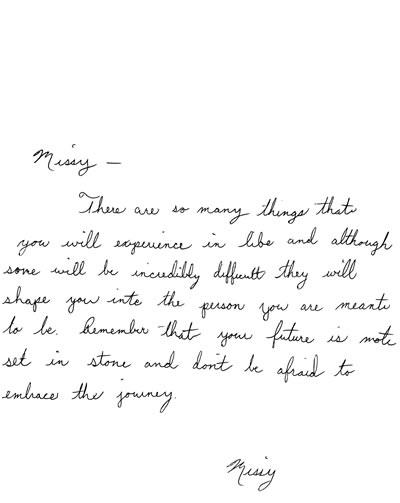 Missy —
There are so many things that
you will experience in life and although
some will be incredibly difficult they will
shape you into the person you are meant
to be. Remember that your future is not
set in stone and don't be afraid to
embrace the journey.
Missy